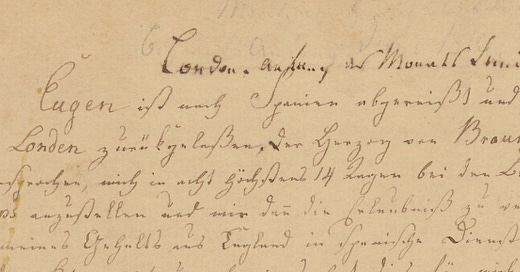 London. Anfang des Monats Juni
Eugen ist nach Spanien abgereißt und
London zurückgelaßen. Der Herzog von Braun
esprochen, mich in acht höchstens 14 Tagen bei den
anzustellen und mir dan die Erlaubniß zu
meines Gehalts aus England in spanische Dienst